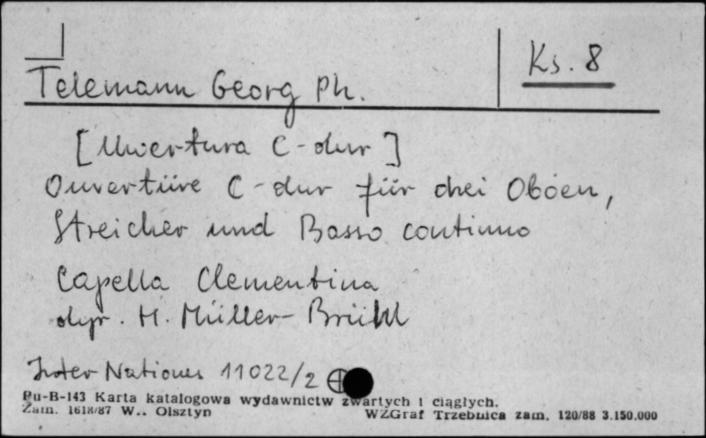 Ks. 8
Telemann Georg Ph.
[Uwertura C-dur]
Ouvertüre C-dur für drei Oboen,
Streicher und Basso continuo
Capella Clementina
dyr. H. Müller-Brühl
Inter Nationes 11022/2
Pu-B-143 Karta katalogowa wydawnictw zwartych i ciągłych.
Zam. 1618/87 W.. Olsztyn WZGraf Trzebnica zam. 120/88 3.150.000